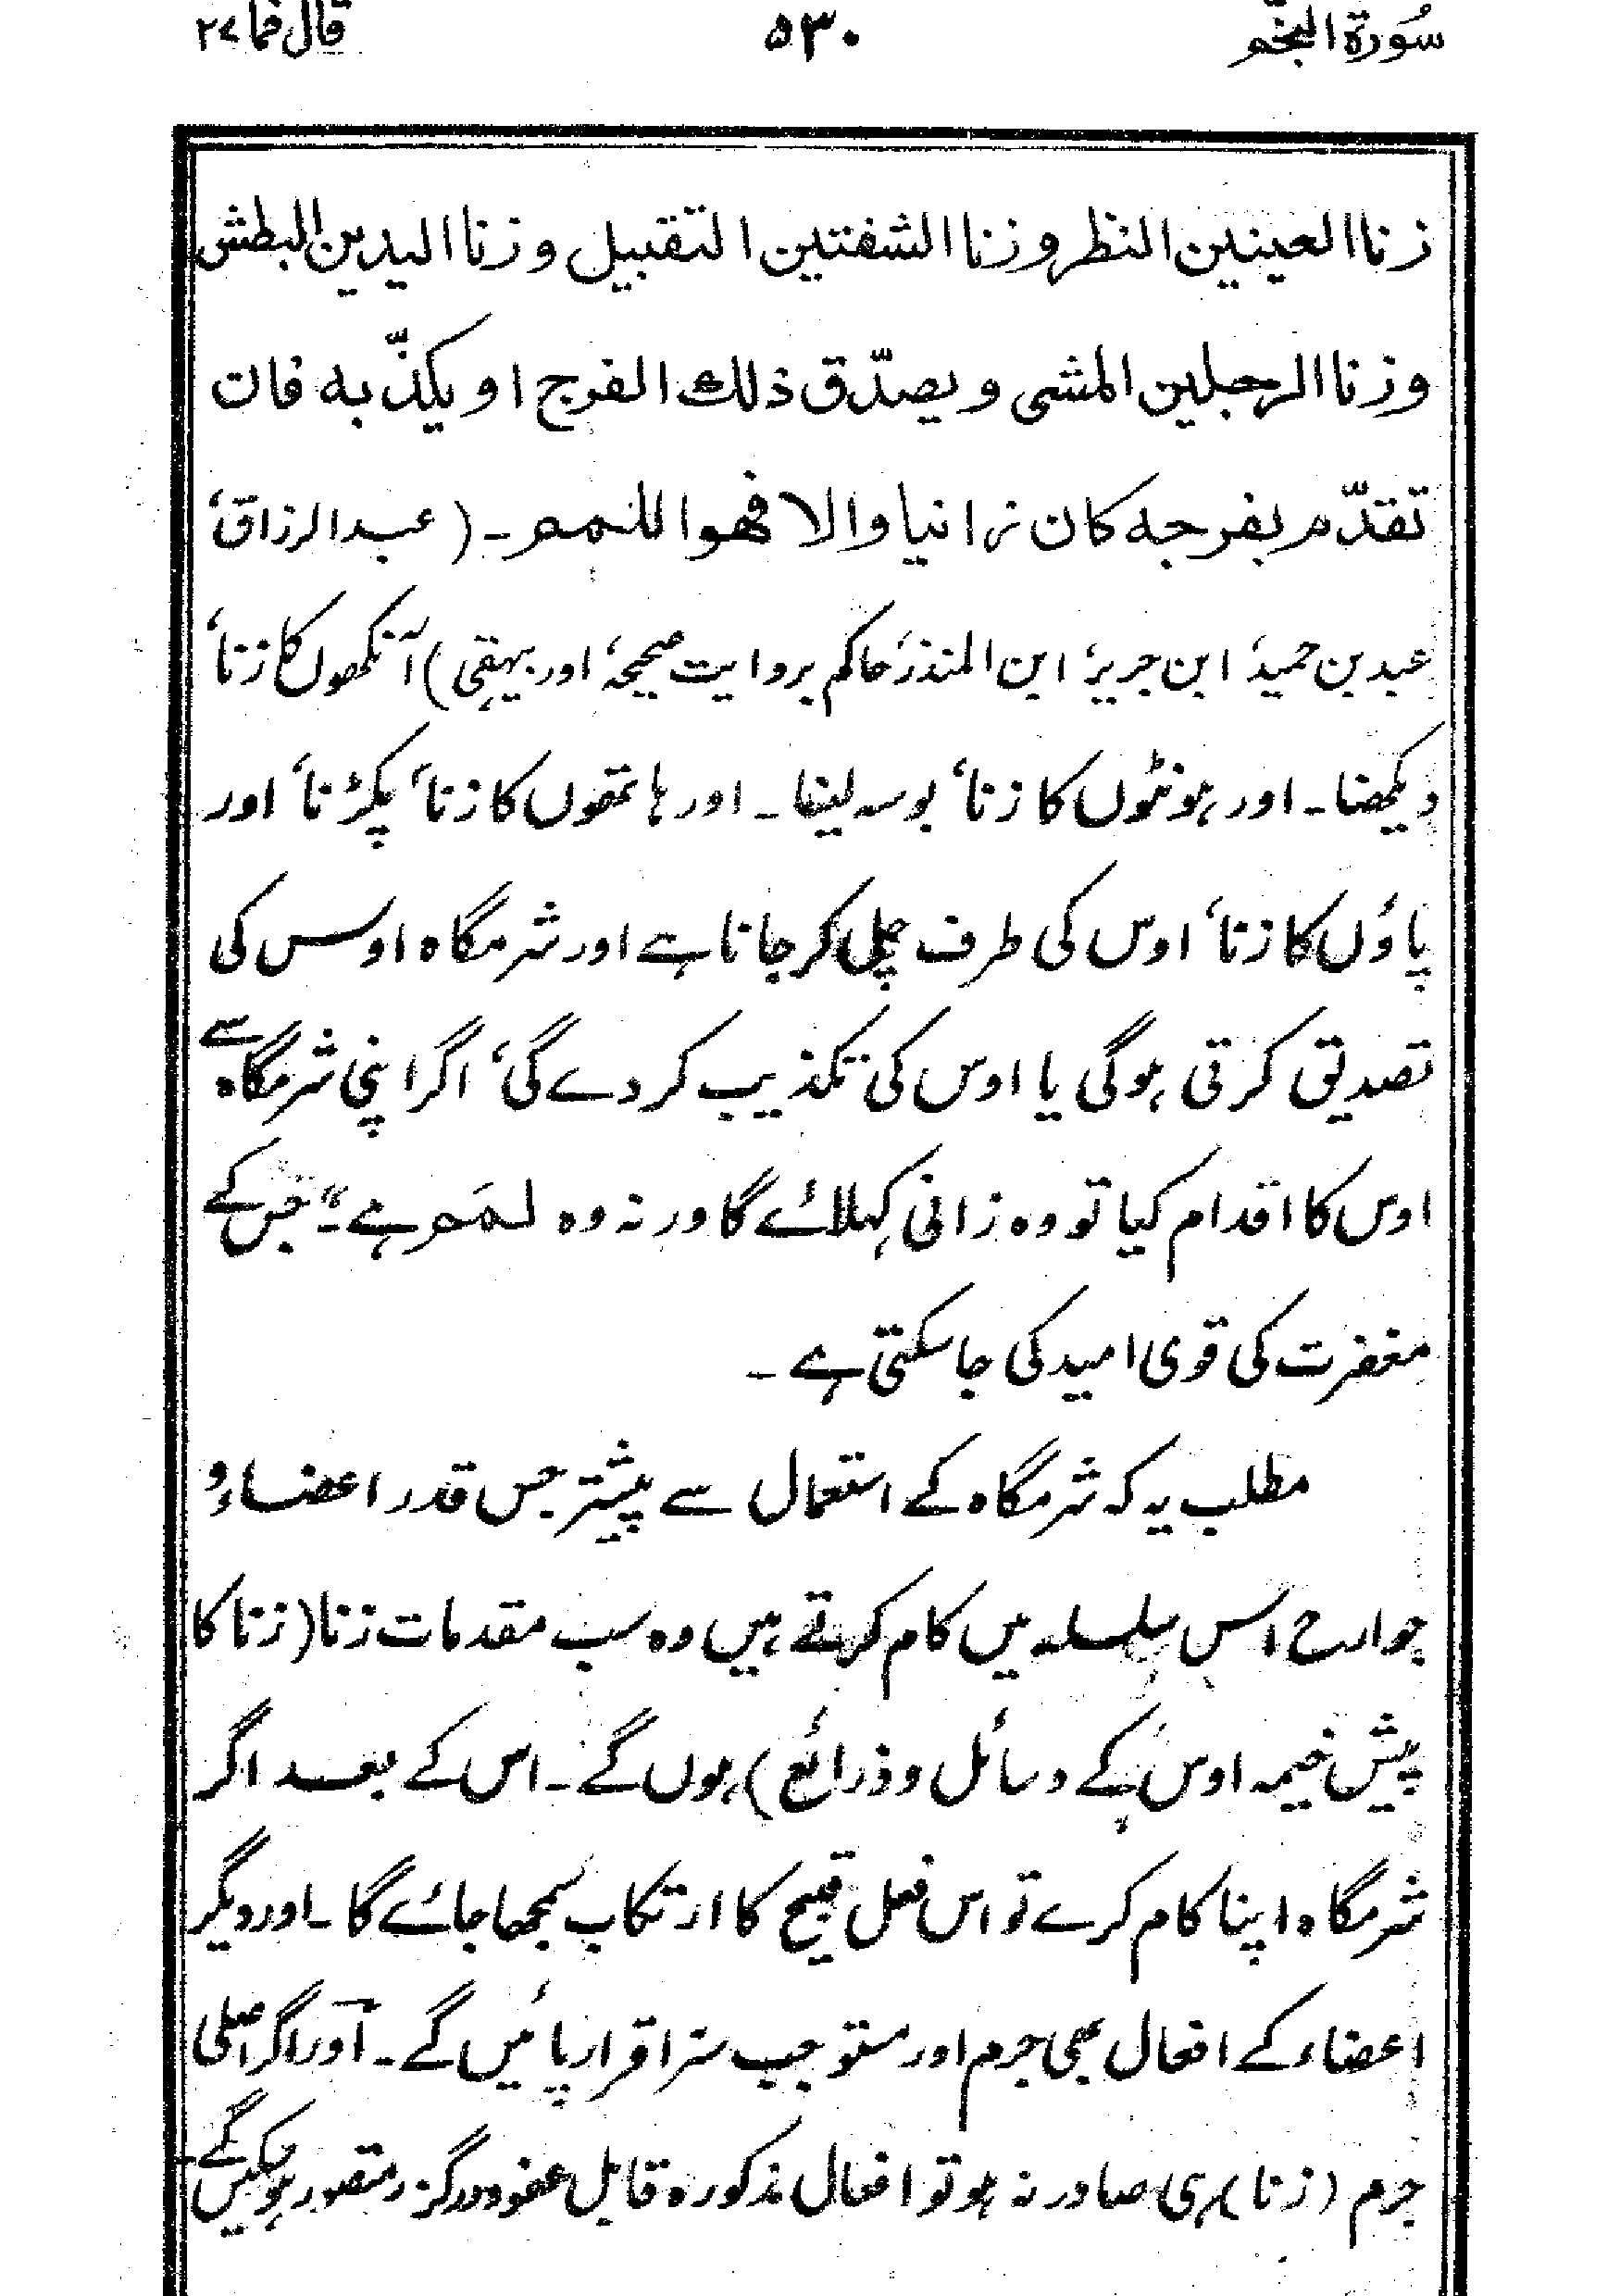 سُورۃ النجّم ۵۳۰ قال فما ۲۷
زنا العینین النظر وزنا الشفتین التقبیل وزنا الیدین البطش
وزنا الرجلین المشی ویصدّق ذلك الفرج او یکذّبه فان
تقدّم بفرجه کان زانیا والا فهو اللمم ۔ (عبدالرزاق،
عبد بن حمید، ابن جریر، ابن المنذر، حاکم بروایت صحیحہ، اور بیہقی) آنکھوں کا زنا،
دیکھنا۔ اور ہونٹوں کا زنا، بوسہ لینا ۔ اور ہاتھوں کا زنا، پکڑنا، اور
پاؤں کا زنا، اوس کی طرف چل کر جانا ہے اور شرمگاہ اوس کی
تصدیق کرتی ہوگی یا اوس کی تکذیب کر دے گی، اگر اپنی شرمگاہ سے
اوس کا اقدام کیا تو وہ زانی کہلائے گا ورنہ وہ لمَم ہے۔“ جس کے
مغفرت کی قوی امید کی جا سکتی ہے ۔
مطلب یہ کہ شرمگاہ کے استعمال سے پیشتر جس قدر اعضاء و
جوارح اس سلسلہ میں کام کرتے ہیں وہ سب مقدمات زنا (زنا کا
پیش خیمہ اوس کے وسائل و ذرائع) ہوں گے ۔ اس کے بعد اگر
شرمگاہ اپنا کام کرے تو اس فعل قبیح کا ارتکاب سمجھا جائے گا ۔ اور دیگر
اعضاء کے افعال بھی جرم اور مستوجب سزا قرار پائیں گے ۔ اور اگر اصلی
جرم (زنا) ہی صادر نہ ہو تو افعال مذکورہ قابل عفو و درگزر متصور ہو سکیں گے ۔